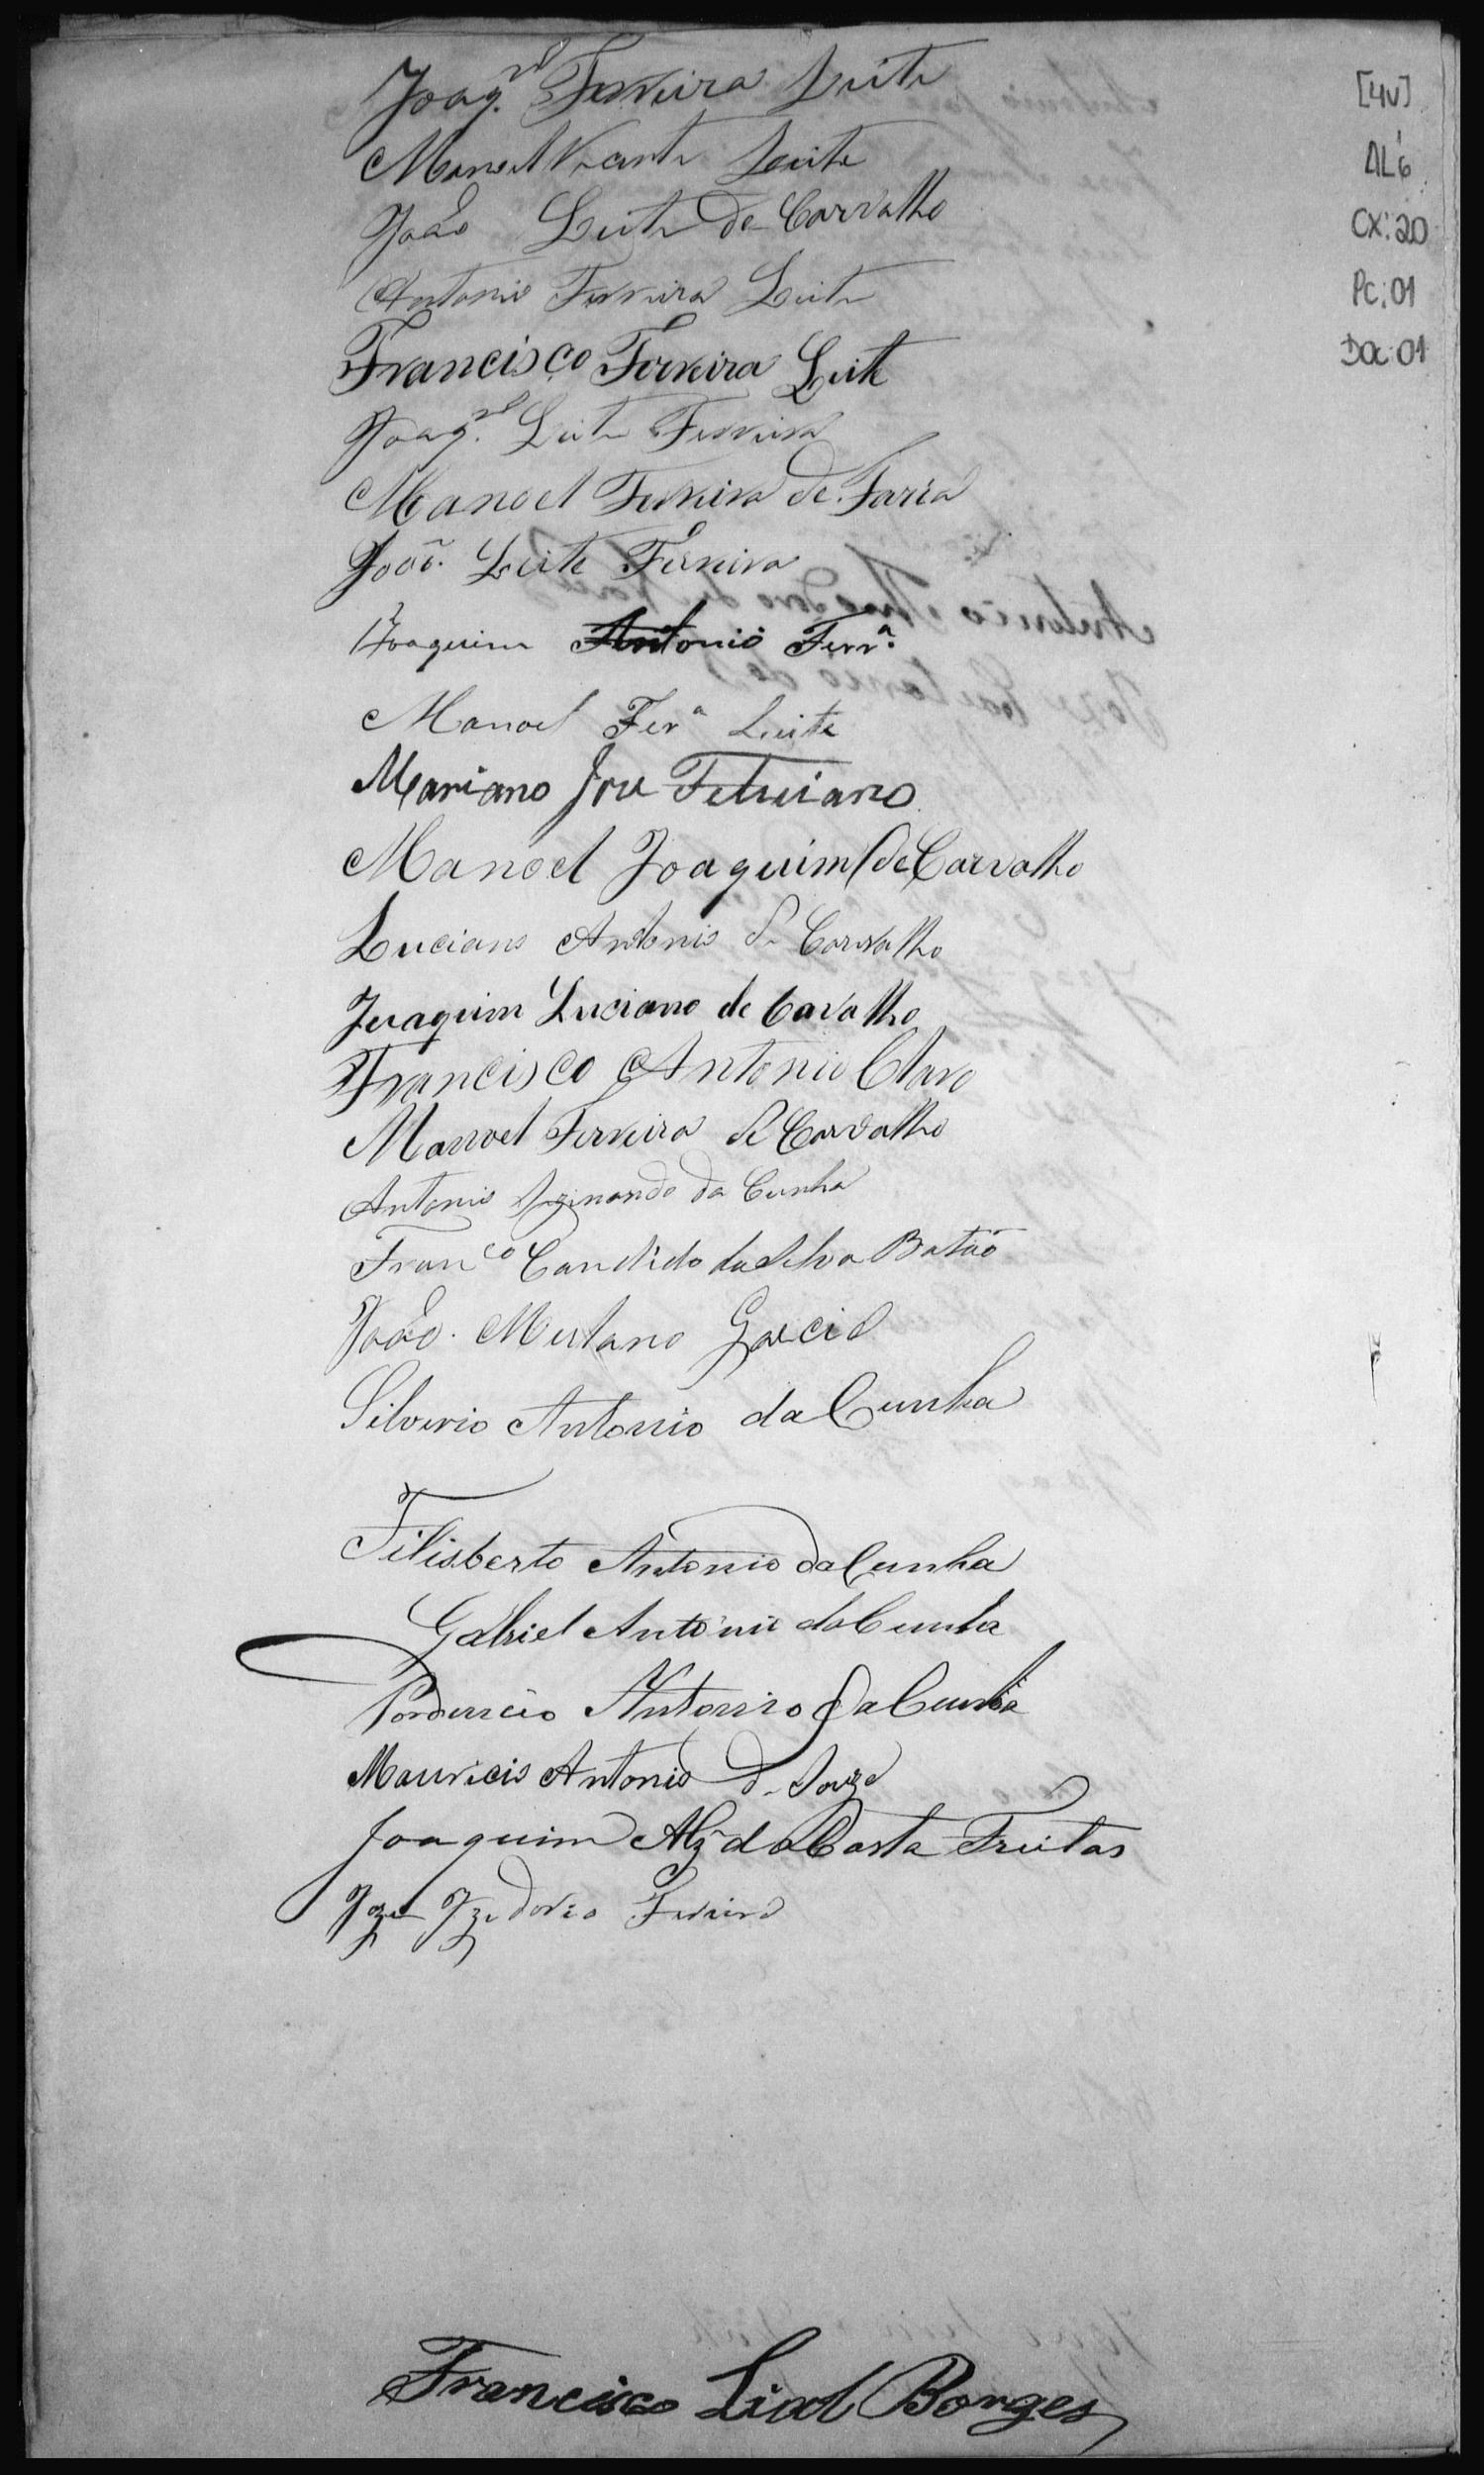 Joaq.m Ferreira Leite
[4v]
Manoel Vicente Leite
AL6
João Leite de Carvalho
CX: 20
Antonio Ferreira Leite
PC: 01
Francisco Ferreira Leite
Doc: 01
Joaq.m Leite Ferreira
Manoel Ferreira de Faria
João Leite Ferreira
Joaquim Antonio Ferr.a
Manoel Fer.a Leite
Mariano Joze Feliciano
Manoel Joaquim de Carvalho
Luciano Antonio de Carvalho
Juaquim Luciano de Carvalho
Francisco Antonio Claro
Manoel Ferreira de Carvalho
Antonio da Cunha
Fran.co Candido da Silva Batão
João Garcia
Silverio Antonio da Cunha
Filisberto Antonio da Cunha
Gabriel Antonio da Cunha
Antonio da Cunha
Mauricio Antonio de Souza
Joaquim Alz da Costa Freitas
Joze Izidorio Ferreira
Francisco Lial Borges